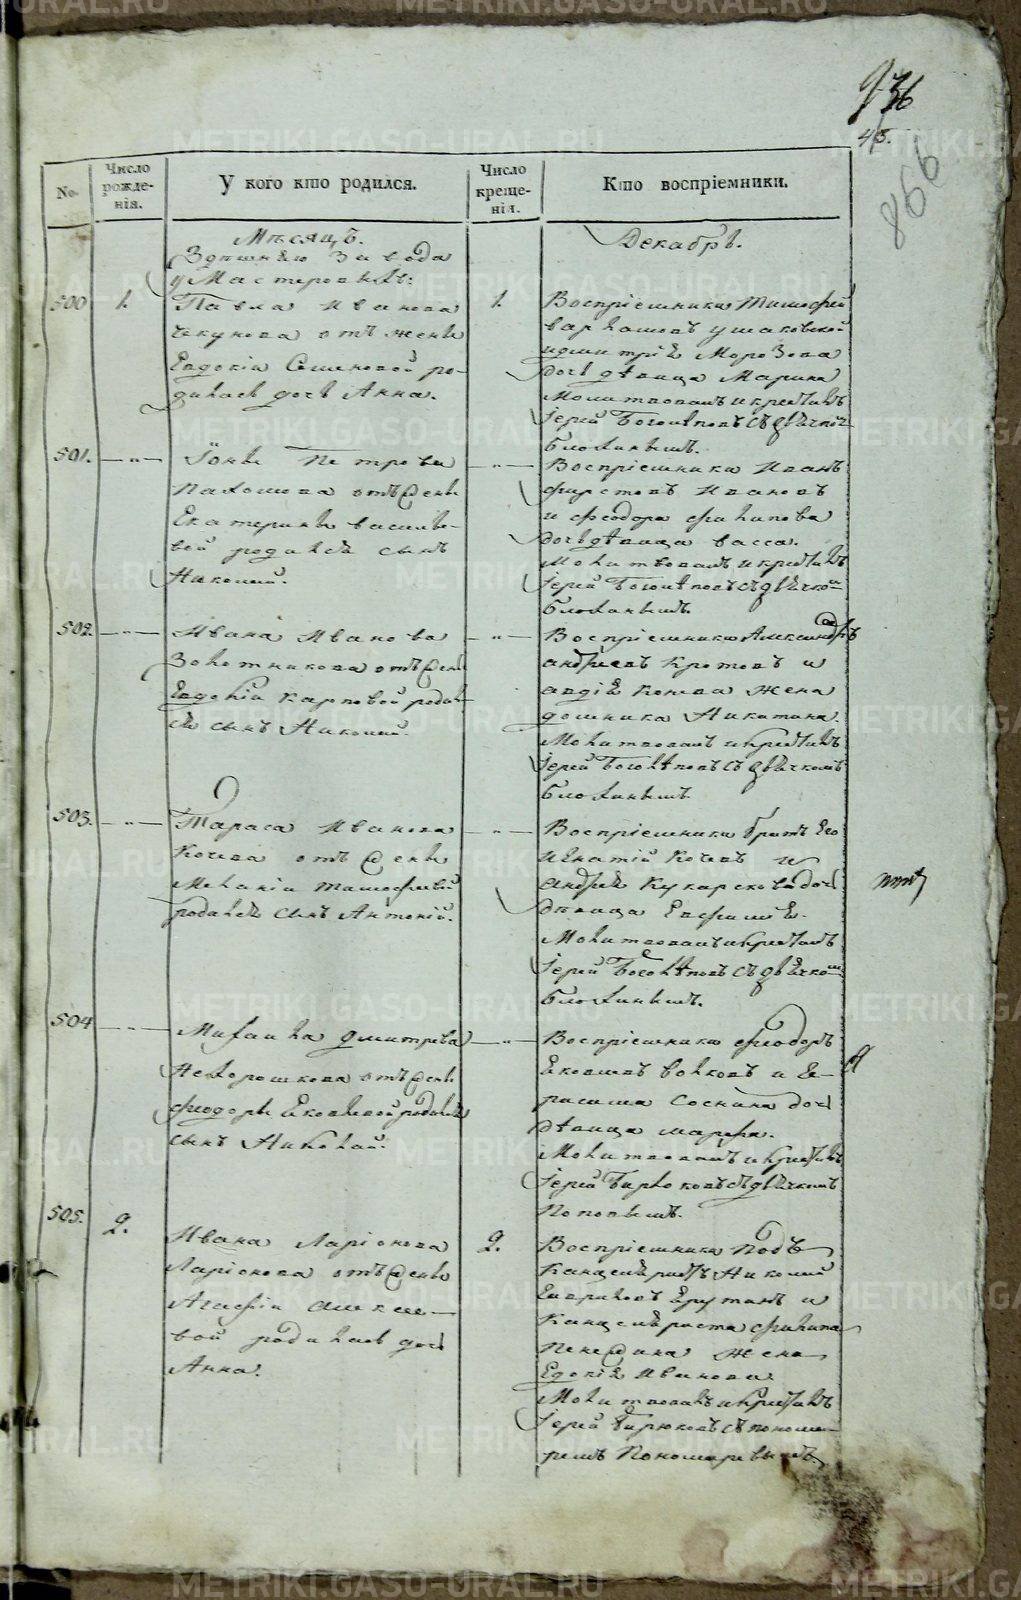 936
45.
866
No.
Число рожде-нія.
У кого кто родился.
Число креще-нія.
Кто воспріемники.
Мѣсяцъ.
Декабрь.
Здѣшняго Завода
у Мастеровыхъ:
500 1.
Павла Иванова
Чекунова отъ жены
Евдокіи Семеновой ро-
дилась дочь Анна.
1.
Воспріемники Тимофей
Варламовъ Ушаковской
и Дмитрія Морозова
дочь дѣвица Марина
Молитвовалъ и крестилъ
Іерей Боголѣповъ съ дьячко
Блохинымъ.
501. — „ —
Іоны Петрова
Пахомова отъ жены
Екатерины Василье-
вой родился сынъ
Николай.
— „ —
Воспріемники Иванъ
Фирстовъ Ивановъ
и Феодора Филипова
дочь дѣвица Васса.
Молитвовалъ и крестилъ
Іерей Боголѣповъ съ дьячко
Блохинымъ.
502. — „ —
Ивана Иванова
Золотникова отъ жены
Евдокіи Карповой родил-
ся сынъ Николай.
— „ —
Воспріемники Александръ
Андреевъ Кротовъ и
жена
Никитина.
Молитвовалъ и крестилъ
Іерей Боголѣповъ съ дьячкомъ
Блохинымъ.
503. — „ —
Тараса Иванова
Кочева отъ жены
Меланіи Тимофеевой
родился сынъ Антоній.
— „ —
Воспріемники братъ Его
Игнатій Кочевъ и
Андрея Кукарскова дочь
дѣвица Евфимія.
Молитвовалъ и крестилъ
Іерей Боголѣповъ съ дьячко
Блохинымъ.
504 — „ —
Михаила Дмитрева
Нехорошкова отъ жены
Феодоры Яковлевой родился
сынъ Николай.
— „ —
Воспріемники Феодоръ
Яковлевъ Волковъ и Ге-
расима Соснина дочь
дѣвица Марфа.
Молитвовалъ и крестилъ
Іерей Бирюковъ съ дьячкомъ
Поповымъ.
505. 2.
Ивана Ларіонова
Ларіонова отъ жены
Агафіи Алексее-
вой родилась дочь
Анна.
2.
Воспріемники Подъ
Канцеляристъ Николай
Гавриловъ и
Канцеляриста Филипа
жена
Евдокія Иванова
Молитвовалъ и крестилъ
Іерей Бирюковъ съ понома-
ремъ Пономаревымъ.
METRIKI.GASO-URAL.RU